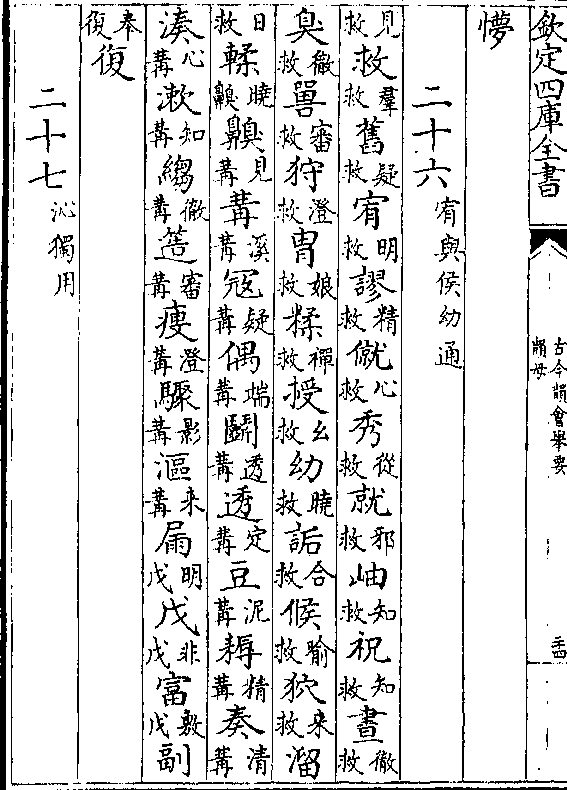 欽定四庫全書
古今韻會舉要
韻母
懜
二十六 宥與侯幼通
見救救羣救舊疑救宥明救謬精救僦心救秀從救就邪救岫知救祝知救晝徹救
臭徹救嘼審救狩澄救胄娘救糅禪救授幺救幼曉救詬合救候喻救狖來救溜
日救輮曉齅齅見冓冓溪冓寇疑冓偶端冓鬬透冓透定冓豆泥冓耨精冓奏清冓
湊心冓漱知冓縐徹冓簉審冓瘦澄冓驟影冓漚來冓扁明戊戊非戊富敷戊副
奉復復
二十七 沁獨用